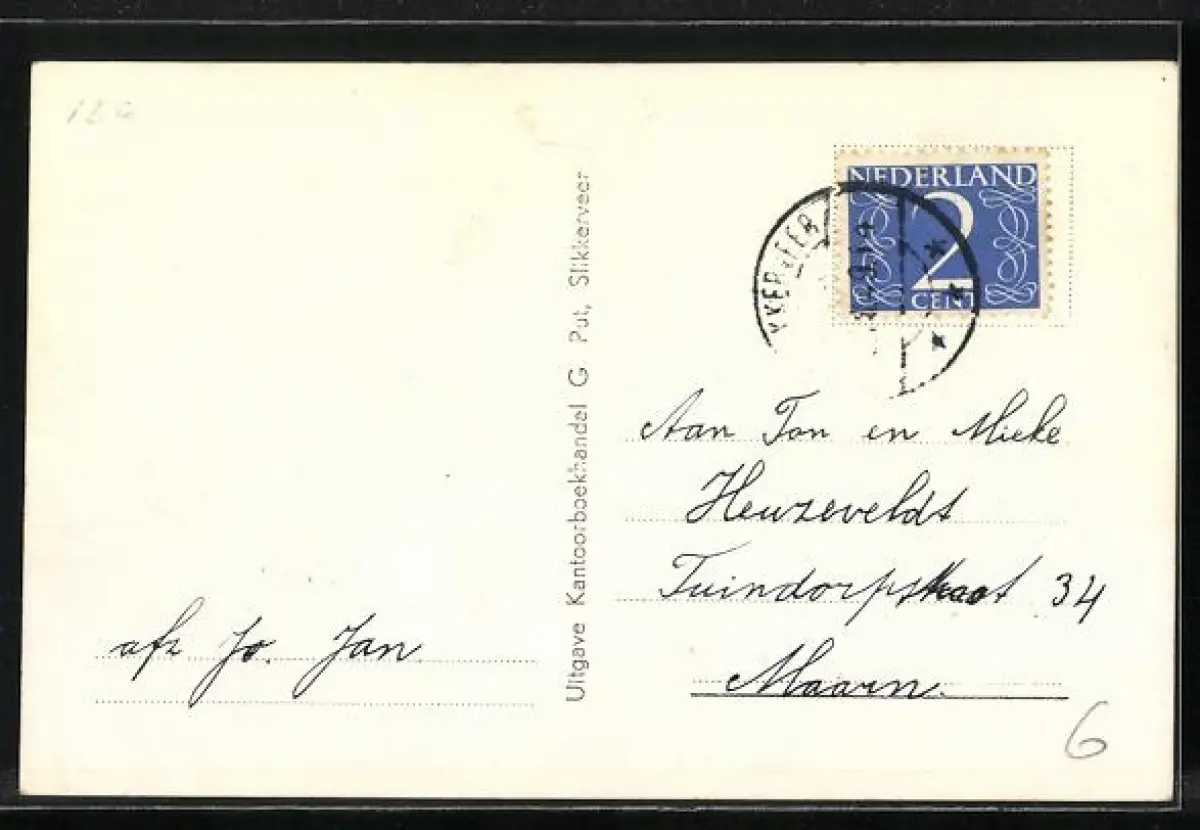 NEDERLAND
2
CENT
KERVEER
Uitgave Kantoorboekhandel G. Put, Slikkerveer
Aan Ton en Mieke
Heuzeveldt
Tuindorpstraat 34
Maarn.
afz Jo. Jan
6